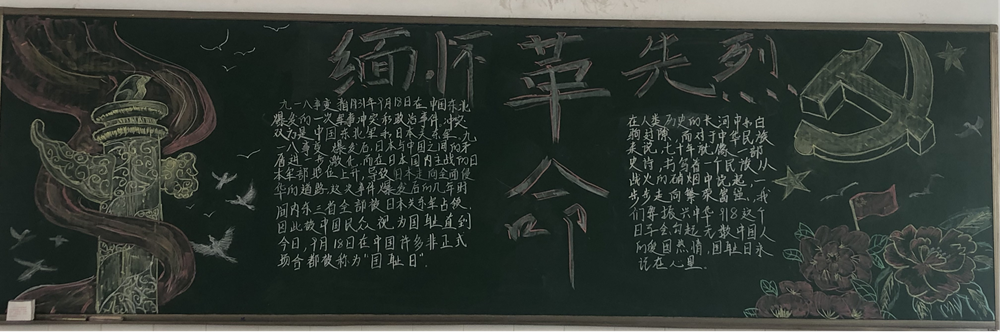 缅怀革命先烈
九一八事变 指1931年9月18日在中国东北
爆发的一次军事冲突和政治事件.冲突
双方是中国东北军和日本关东军,九
一八事变爆发后,日本与中国之间的矛
盾进一步激化,而在日本国内主战的日
本军部地位上升,导致日本走向全面侵
华的道路.这次事件爆发后的几年时
间内东三省全部被日本关东军占领.
因此被中国民众视为国耻直到
今日,9月18日在中国许多非正式
场合都被称为"国耻日".
在人类历史的长河中和白
驹过隙,而对于中华民族
来说,七十年就像一部
史诗,书写着一个民族从
战火的硝烟中站起,一
步步走向繁荣富强,我
们奔振兴中华,918这个
日子会勾起无数中国人
的爱国热情,国耻日永
记在心里.